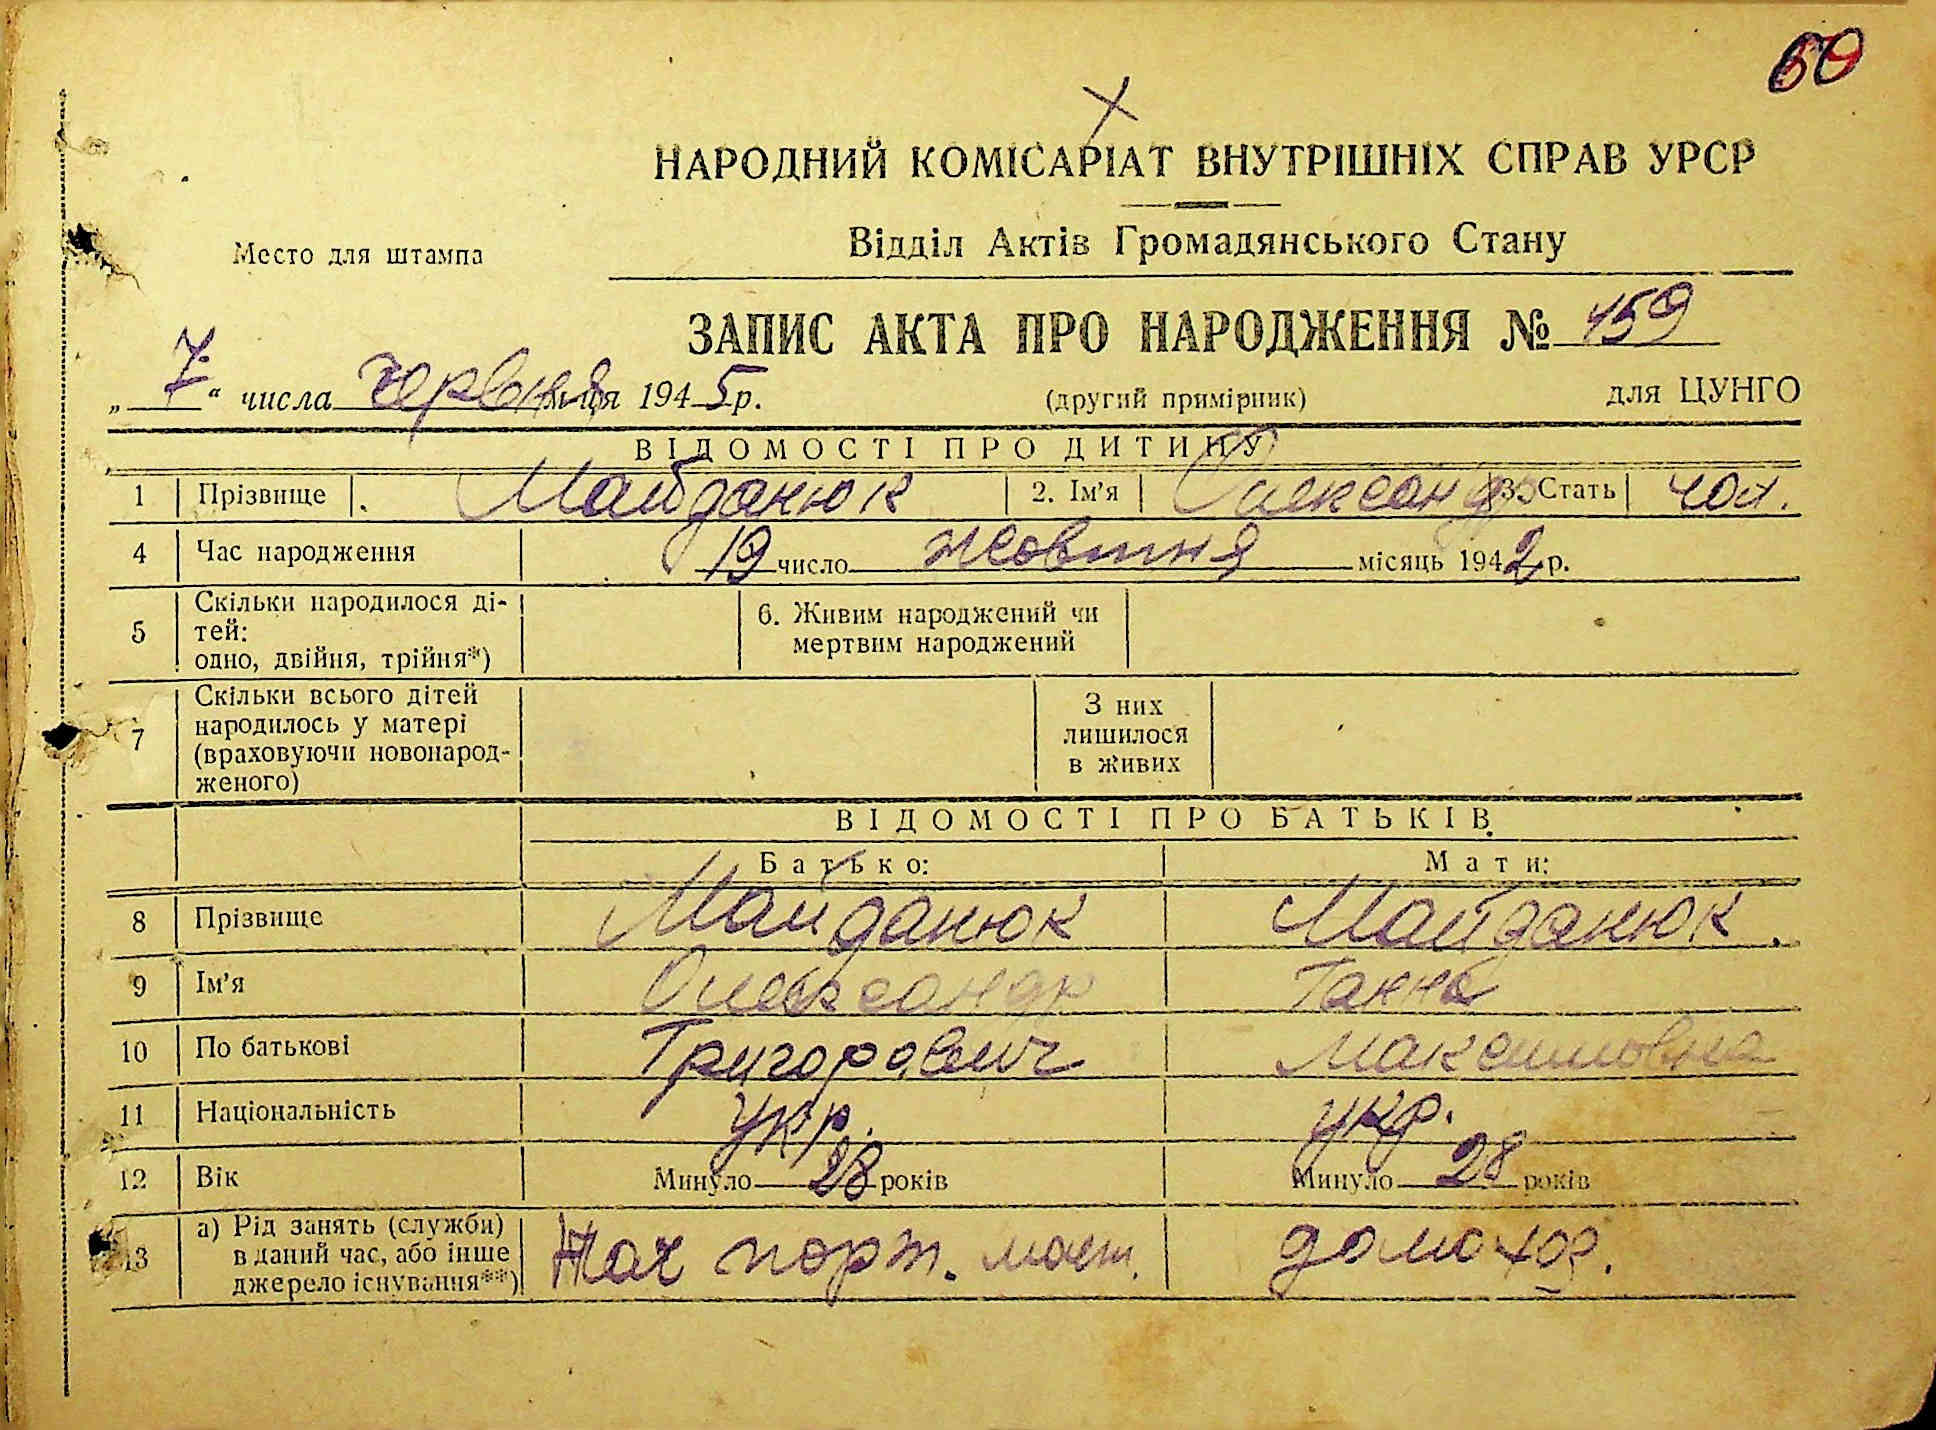 60
НАРОДНИЙ КОМІСАРІАТ ВНУТРІШНІХ СПРАВ УРСР
Место для штампа
Відділ Актів Громадянського Стану
ЗАПИС АКТА ПРО НАРОДЖЕННЯ № 159
„ 7 “ числа червня м-ця 1945 р. (другий примірник) для ЦУНГО
ВІДОМОСТІ ПРО ДИТИНУ
1 Прізвище Майданюк 2. Ім'я Олександр 3. Стать чол.
4 Час народження 19 число жовтня місяць 1942 р.
5 Скільки народилося ді-
тей:
одно, двійня, трійня*)
6. Живим народжений чи
мертвим народжений
7 Скільки всього дітей
народилось у матері
(враховуючи новонарод-
женого)
З них
лишилося
в живих
ВІДОМОСТІ ПРО БАТЬКІВ
Батько: Мати:
8 Прізвище Майданюк Майданюк
9 Ім'я Олександр Ганна
10 По батькові Григорович Максимовна
11 Національність укр. укр.
12 Вік Минуло 28 років Минуло 28 років
13 а) Рід занять (служби)
в даний час, або інше
джерело існування**)
Нач порт. маст. домохоз.